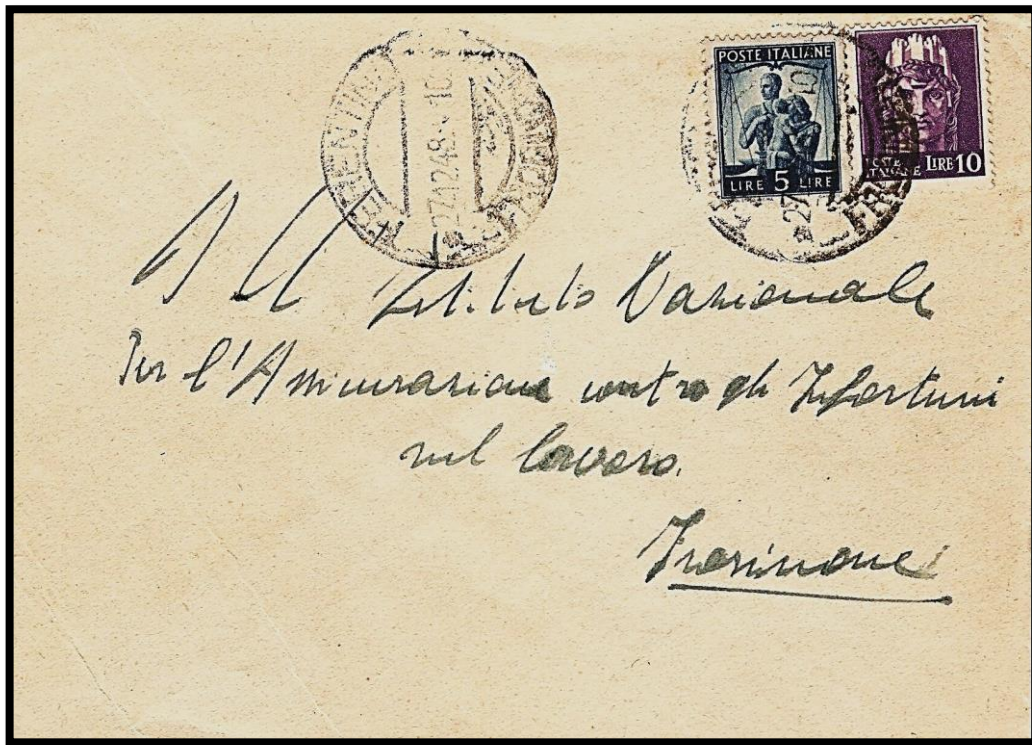 POSTE ITALIANE
LIRE 5 LIRE
POSTE ITALIANE LIRE 10
FERENTINO
27.12.48.-10
All Istituto Nazionale
Per l'Assicurazione contro gli Infortuni
sul lavoro.
Frosinone